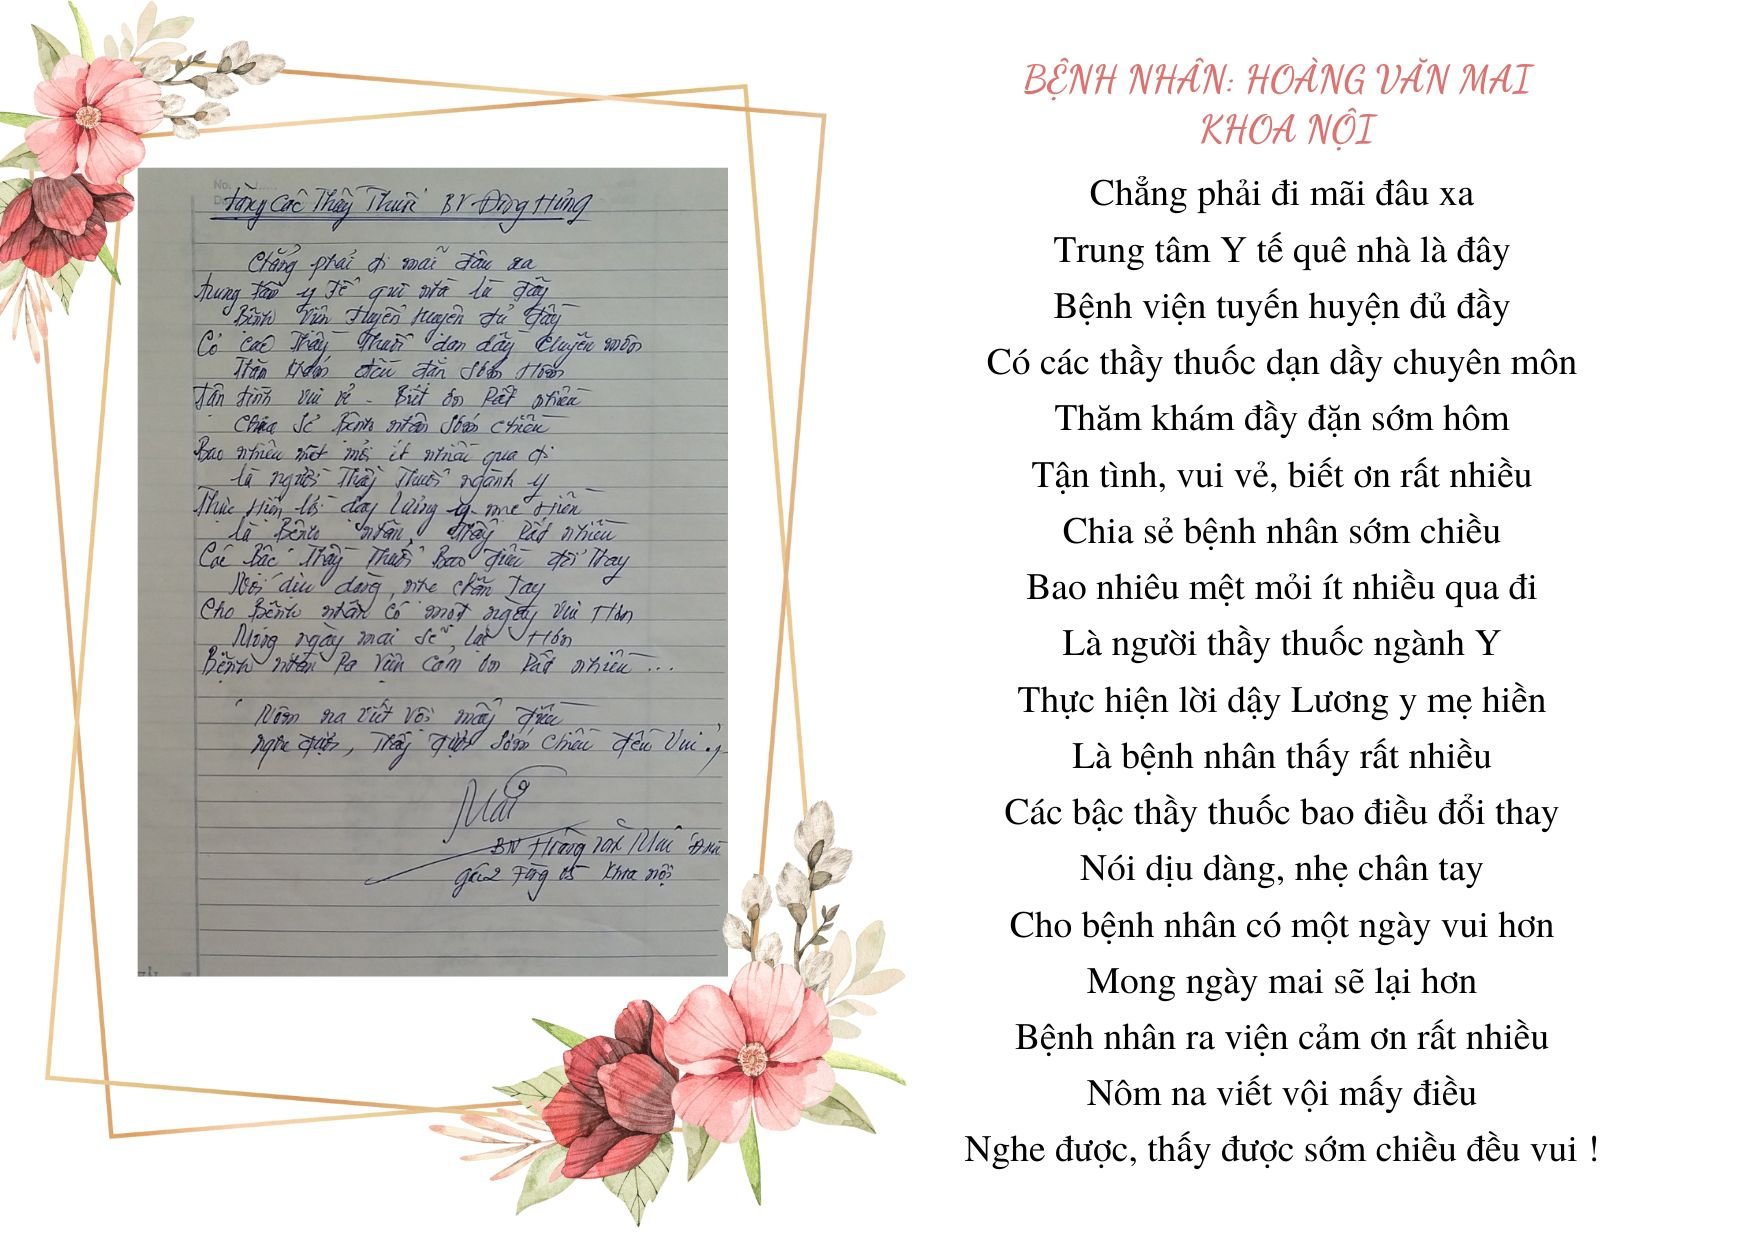 No.
Tặng Các Thầy Thuốc BV Đông Hưng
Chẳng phải đi mãi đâu xa
Trung tâm y tế quê nhà là đây
Bệnh viện tuyến huyện đủ đầy
Có các Thầy Thuốc dạn dầy chuyên môn
Thăm khám đều đặn sớm hôm
Tận tình vui vẻ - Biết ơn Rất nhiều
Chia sẻ Bệnh nhân sớm chiều
Bao nhiêu mệt mỏi ít nhiều qua đi
là người Thầy Thuốc ngành y
Thực hiện lời dạy lương y mẹ hiền
là Bệnh nhân, thấy Rất nhiều
Các Bậc Thầy Thuốc Bao điều đổi thay
Nói dịu dàng, nhẹ chân tay
Cho Bệnh nhân có một ngày vui hơn
Mong ngày mai sẽ lại hơn
Bệnh nhân Ra viện cảm ơn Rất nhiều ...
Nôm na viết vội mấy điều
nghe được, thấy được sớm chiều đều vui !
Mai
BN Hoàng Văn Mai
05 khoa nội
BỆNH NHÂN: HOÀNG VĂN MAI
KHOA NỘI
Chẳng phải đi mãi đâu xa
Trung tâm Y tế quê nhà là đây
Bệnh viện tuyến huyện đủ đầy
Có các thầy thuốc dạn dầy chuyên môn
Thăm khám đầy đặn sớm hôm
Tận tình, vui vẻ, biết ơn rất nhiều
Chia sẻ bệnh nhân sớm chiều
Bao nhiêu mệt mỏi ít nhiều qua đi
Là người thầy thuốc ngành Y
Thực hiện lời dậy Lương y mẹ hiền
Là bệnh nhân thấy rất nhiều
Các bậc thầy thuốc bao điều đổi thay
Nói dịu dàng, nhẹ chân tay
Cho bệnh nhân có một ngày vui hơn
Mong ngày mai sẽ lại hơn
Bệnh nhân ra viện cảm ơn rất nhiều
Nôm na viết vội mấy điều
Nghe được, thấy được sớm chiều đều vui !